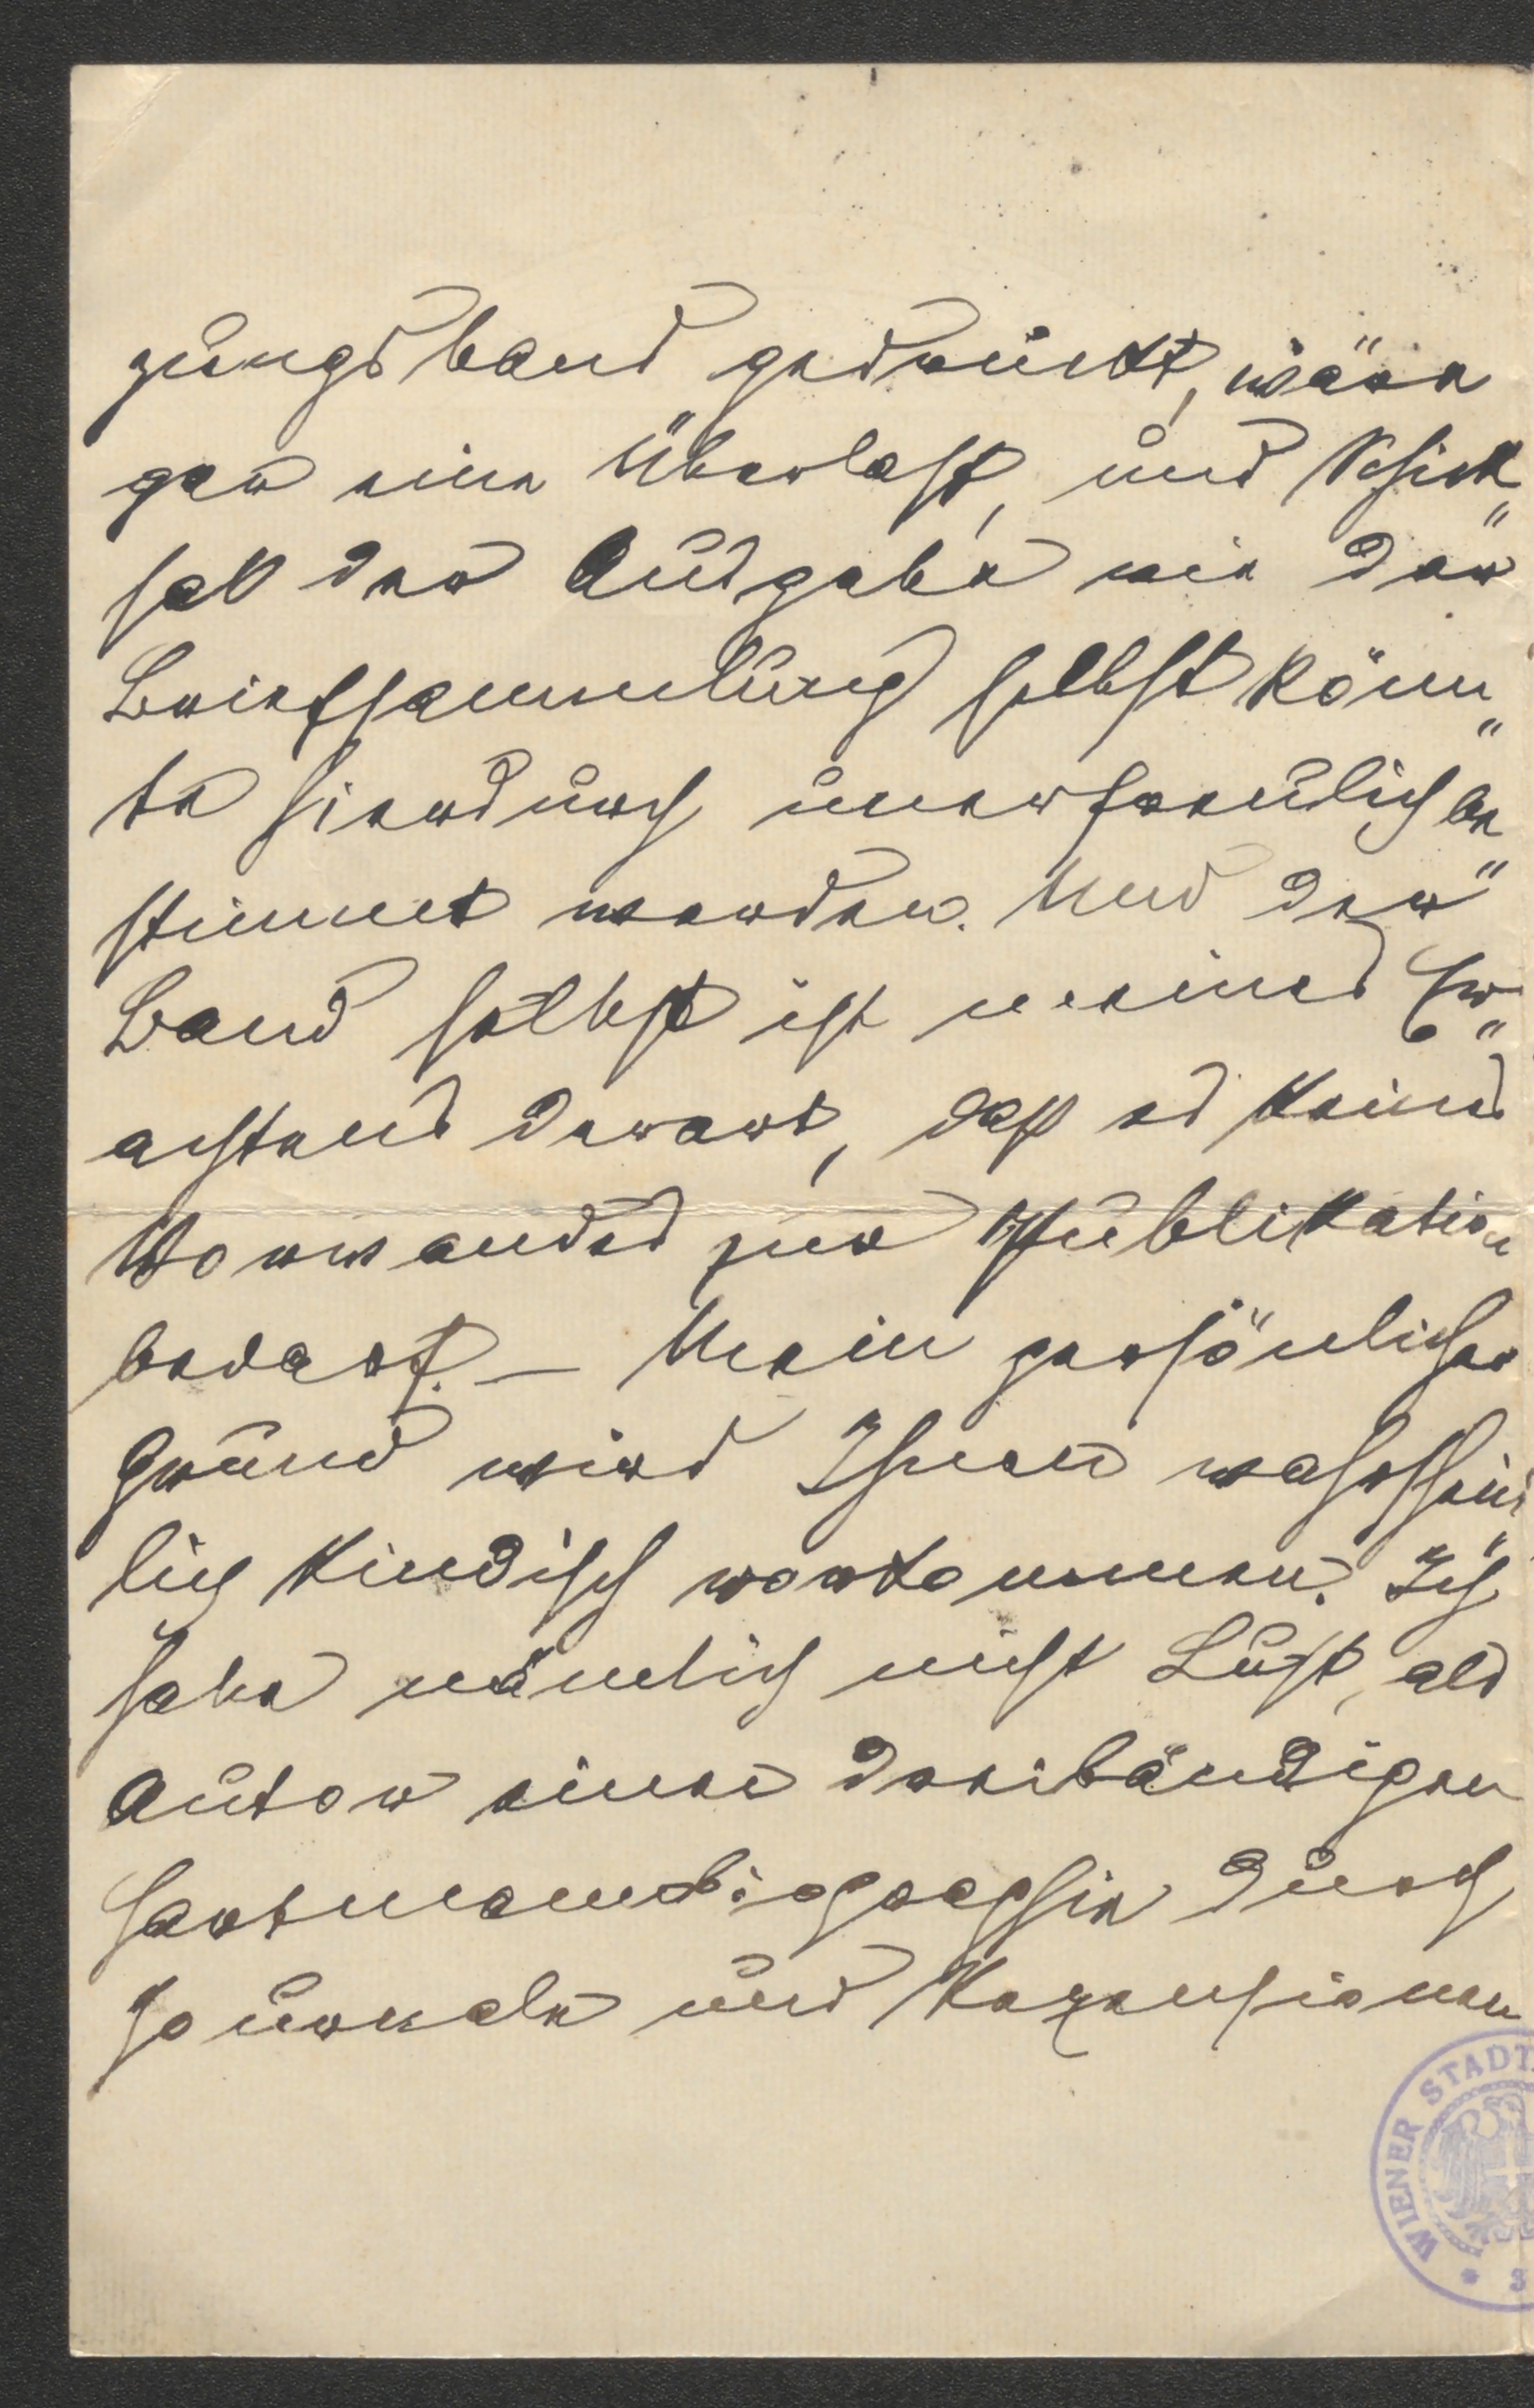 zungsband gedruckt, wäre
gar eine Überlast, und Schick„
sal der Ausgabe wie der
Briefsammlung selbst könn„
te hierdurch unerfreulich be„
stimmt werden. Und der
Band selbst ist meines Er„
achtens derart, daß es keines
Vorwandes zur Publikation
bedarf. – Mein persönlicher
Grund wird Ihnen wahrschein„
lich kindisch vorkommen. Ich
habe nämlich nicht Lust, als
Autor einer dreibändigen
Hartmannbiographie durch
Journale und Rezensionen
WIENER STADT
* 3